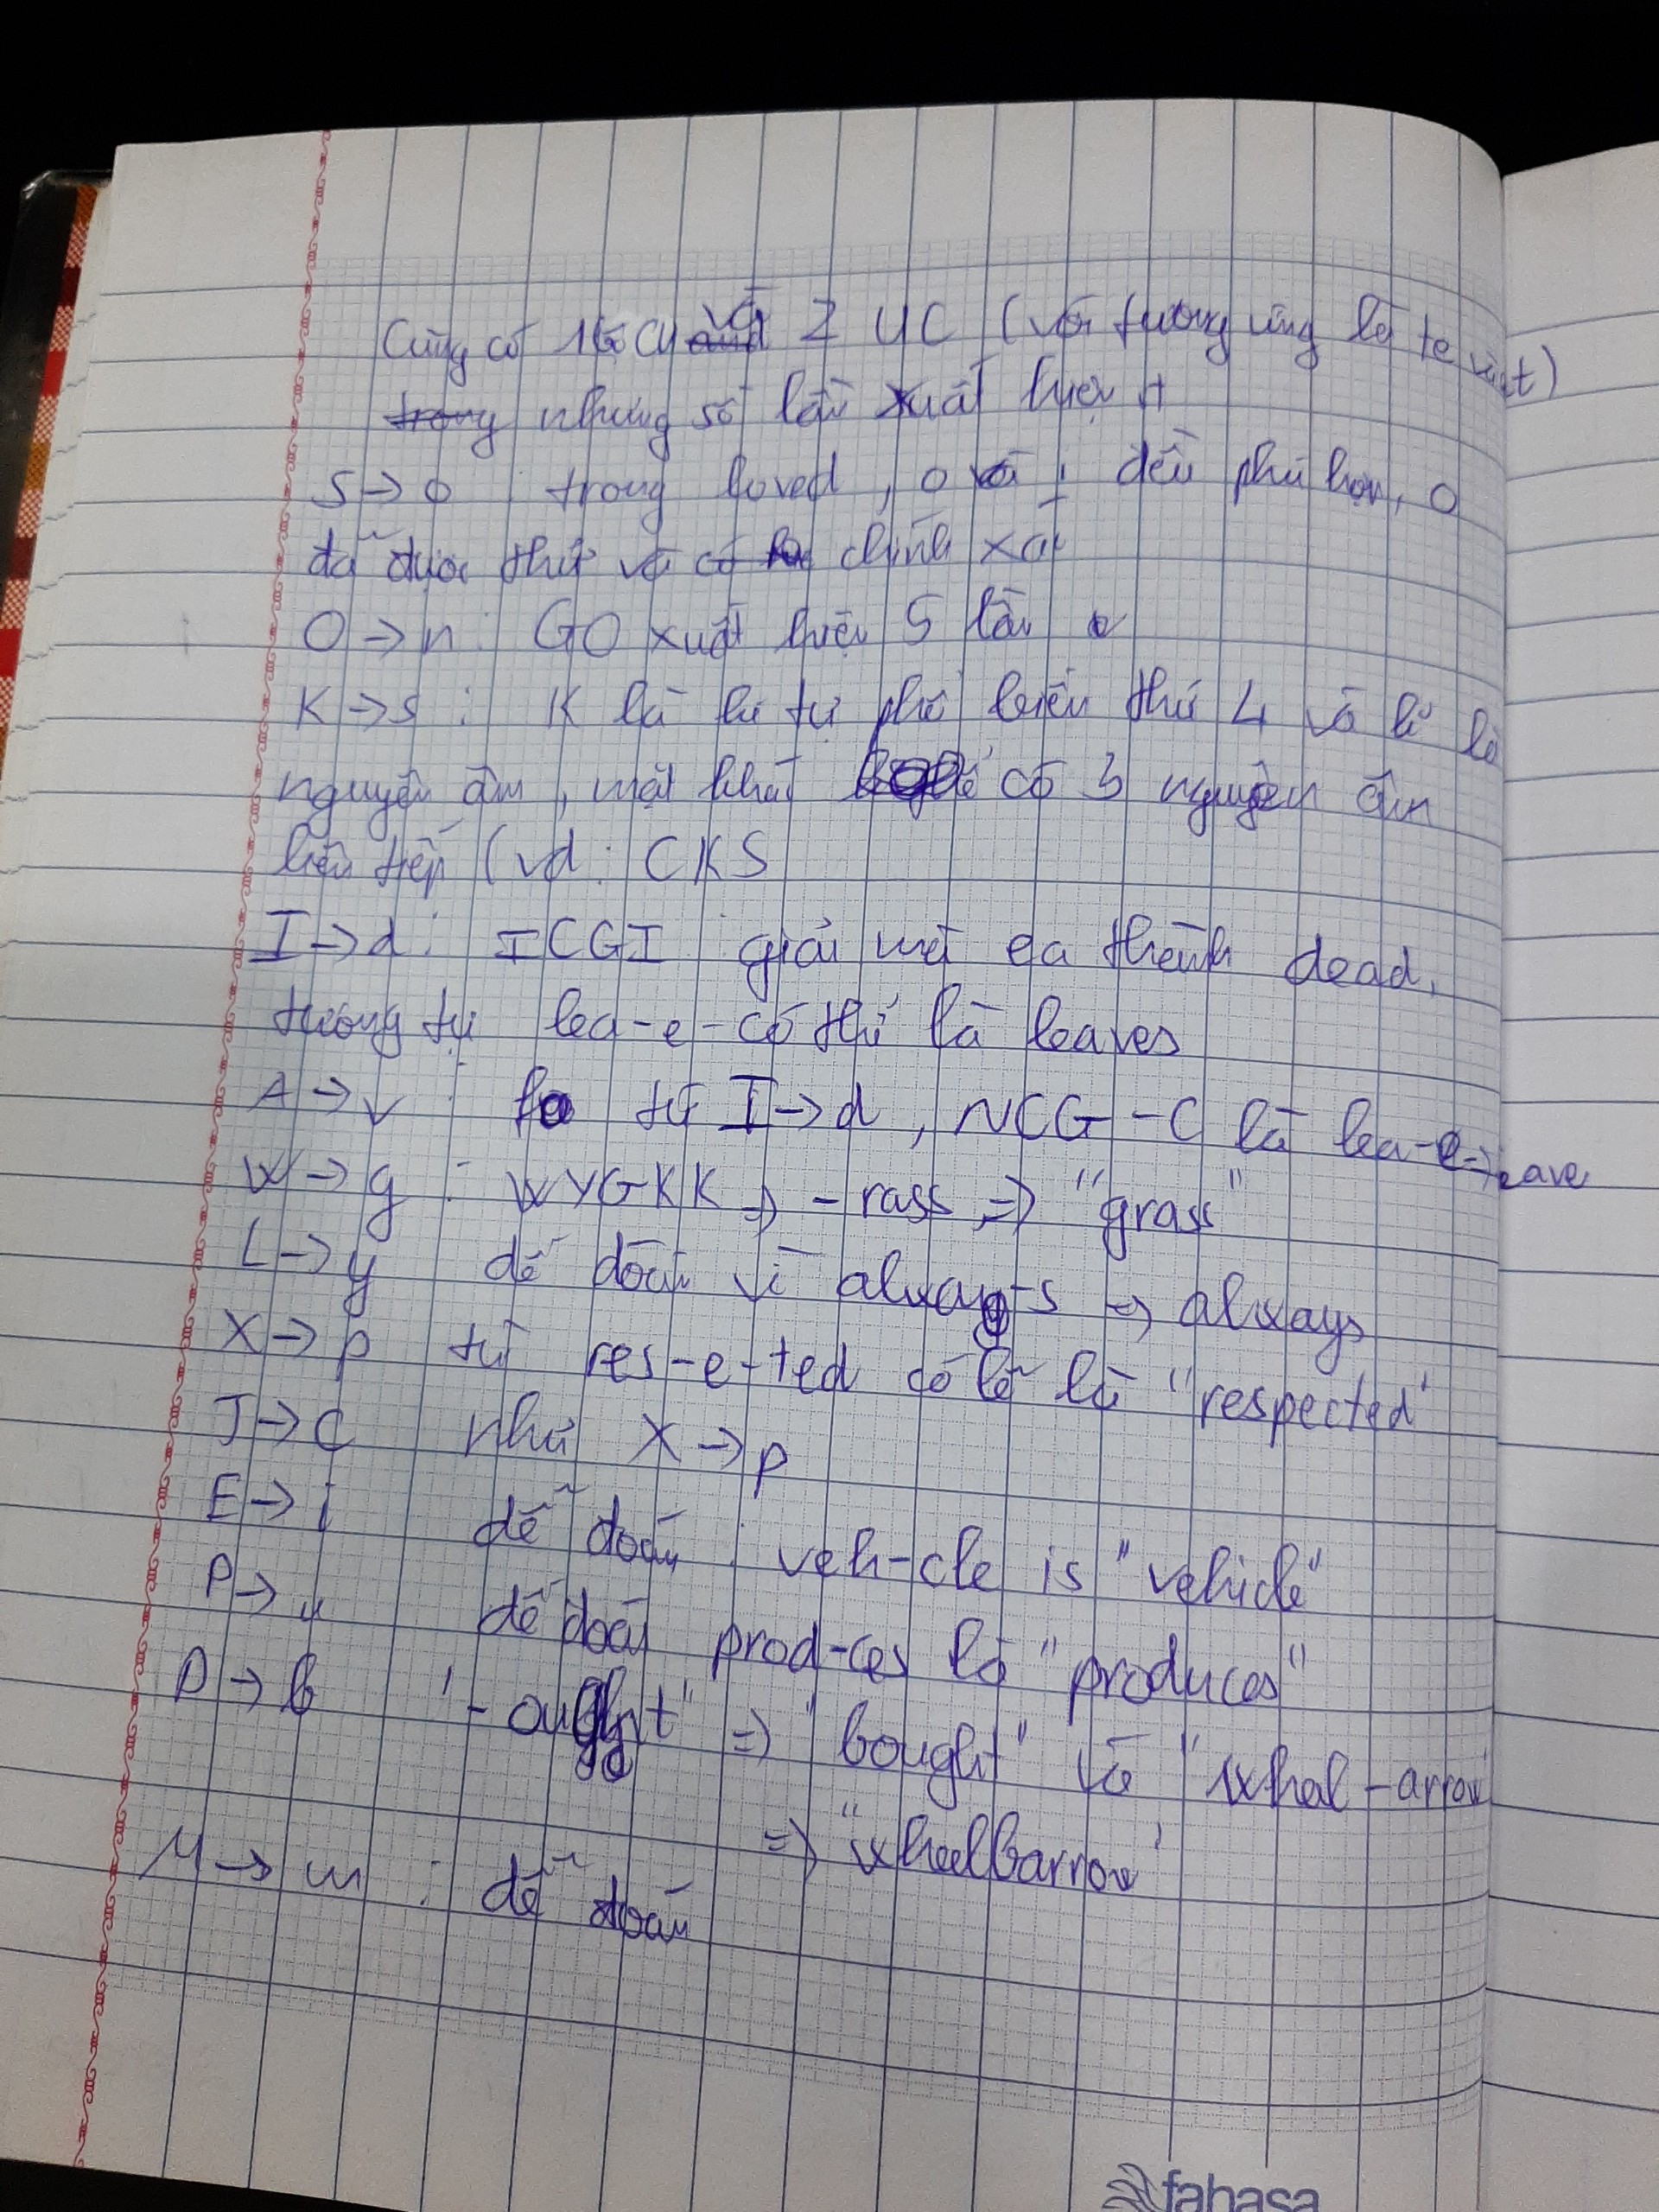 Cũng có 1 CU và 2 UC (với tương ứng là te và et)
nhưng số lần xuất hiện
S → o : trong loved, o và i đều phù hợp, o
đã được thử và có chính xác
O → n : GO xuất hiện 5 lần
K → s : K là kí tự phổ biến thứ 4 và là
nguyên âm, mặt khác có 3 nguyên âm
liên tiếp (vd : CKS
I → d : ICGI giải mã ea thành dead,
tương tự lea-e- có thể là leaves
A → v : từ I → d, NCG-C là lea-e → leave
W → g : WYGKK => -rass => "grass"
L → y dễ đoán vì alway-s => always
X → p từ res-e-ted có lẽ là "respected"
J → c như X → p
E → i dễ đoán : veh-cle is "vehicle"
P → u dễ đoán prod-ces là "produces"
D → b "-ought" => "bought" và "whal-arrow"
=> "wheelbarrow"
M → m : dễ đoán
fahasa